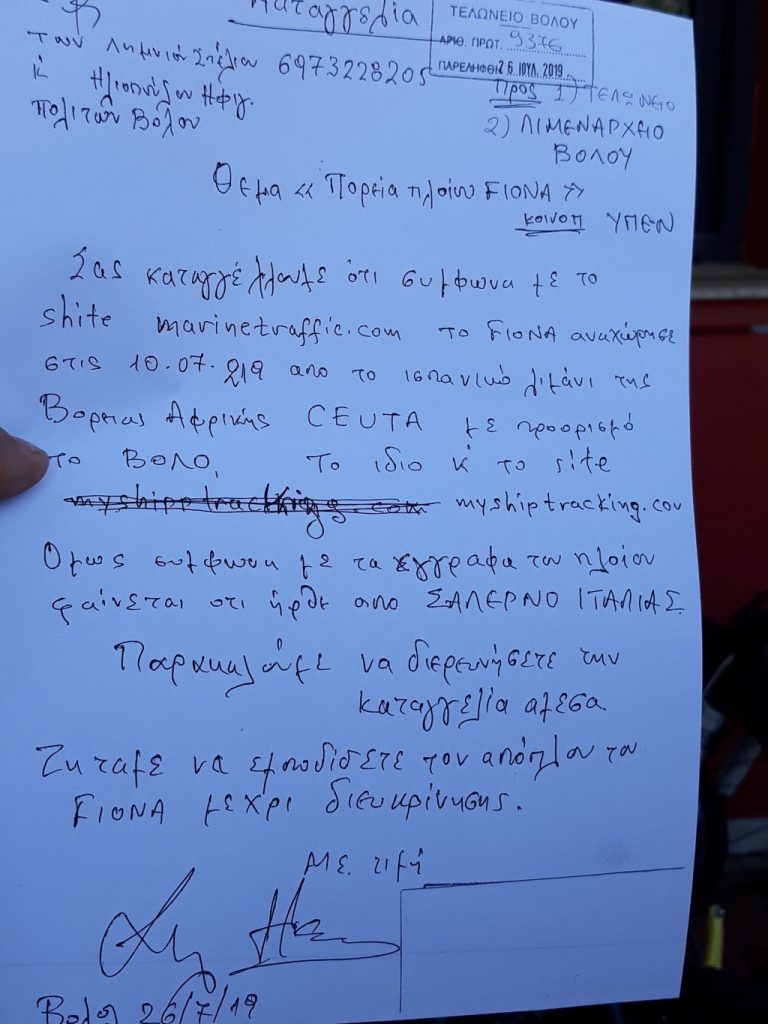 Καταγγελία
ΤΕΛΩΝΕΙΟ ΒΟΛΟΥ
ΑΡΙΘ. ΠΡΩΤ. 9376
ΠΑΡΕΛΗΦΘΗ 26 ΙΟΥΛ. 2019
των Λημνιού Στέλιου 6973228205
κ
πολιτών Βόλου
Προς 1) ΤΕΛΩΝΕΙΟ
2) ΛΙΜΕΝΑΡΧΕΙΟ
ΒΟΛΟΥ
Θεμα « Πορεία πλοίου FIONA »
κοινοπ ΥΠΕΝ
Σας καταγγέλλουμε ότι συμφωνα με το
shite marinetraffic.com το FIONA αναχώρησε
στις 10.07.219 απο το ισπανικό λιμάνι της
Βορειας Αφρικής CEUTA με προορισμό
το ΒΟΛΟ, Το ιδιο κ το site
myshipptracking.com myshiptracking.cov
Ομως συμφωνα με τα εγγραφα του πλοίου
φαίνεται οτι ήρθε απο ΣΑΛΕΡΝΟ ΙΤΑΛΙΑΣ.
Παρακαλούμε να διερευνήσετε την
καταγγελία αμεσα.
Ζηταμε να εμποδίσετε τον απόπλου του
FIONA μεχρι διευκρίνησης.
Με τιμή
Βολος 26/7/19